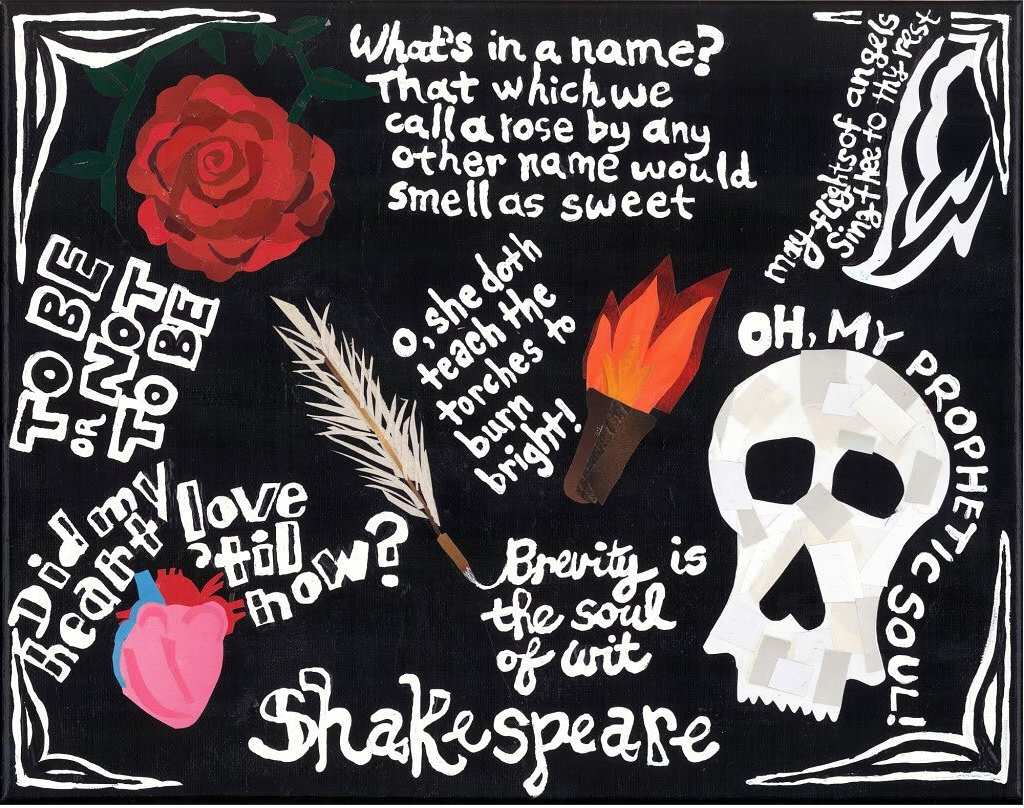 What's in a name?
That which we
call a rose by any
other name would
smell as sweet
may flights of angels
Sing thee to thy rest
TO BE
OR NOT
TO BE
O, she doth
teach the
torches to
burn
bright!
OH, MY PROPHETIC SOUL!
Did my
heart
love
'til
now?
Brevity is
the soul
of wit
Shakespeare